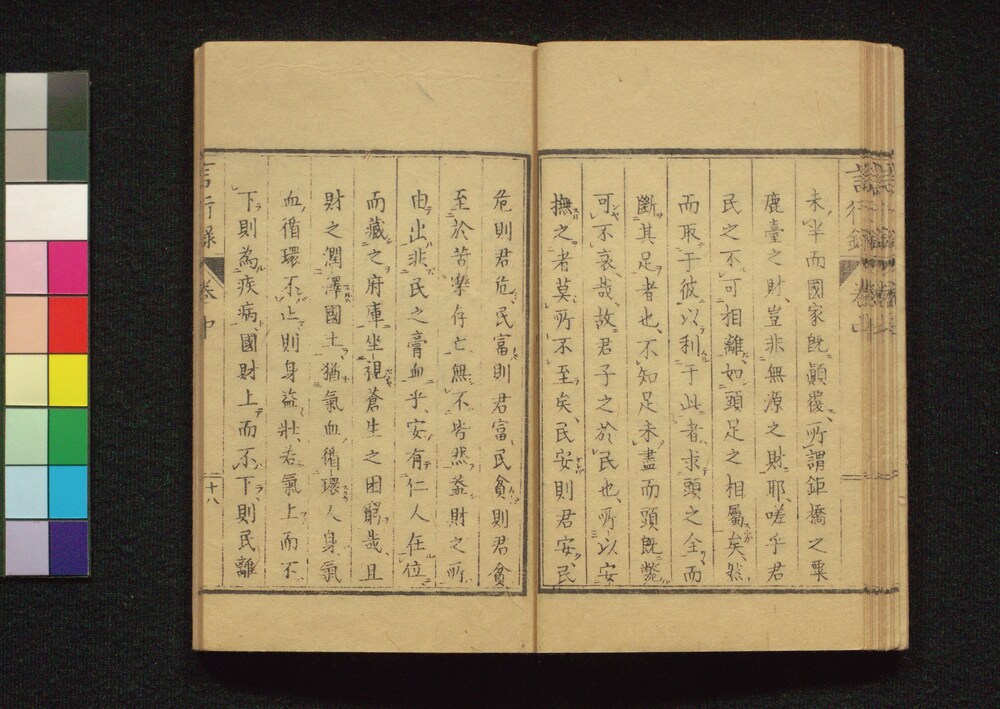 未半而國家既顚覆、所謂鉅橋之粟
鹿臺之財、豈非無源之財耶、嗟乎君
民之不可相離、如頭足之相屬矣、然
而取于彼以利于此者、求頭之全而
斷其足者也、不知足未盡而頭既斃
可不哀哉、故君子之於民也、所以安
撫之者莫所不至矣、民安則君安、民
危則君危、民富則君富、民貧則君貧
至於苦樂存亡無不皆然、蓋財之所
由出、非民之膏血乎、安有仁人在位
而藏之府庫、坐視蒼生之困窮哉、且
財之潤澤國土、猶氣血循環人身、氣
血循環不止則身益壯、若氣上而不
下則為疾病、國財上而不下則民離
言行録 卷中
二十八